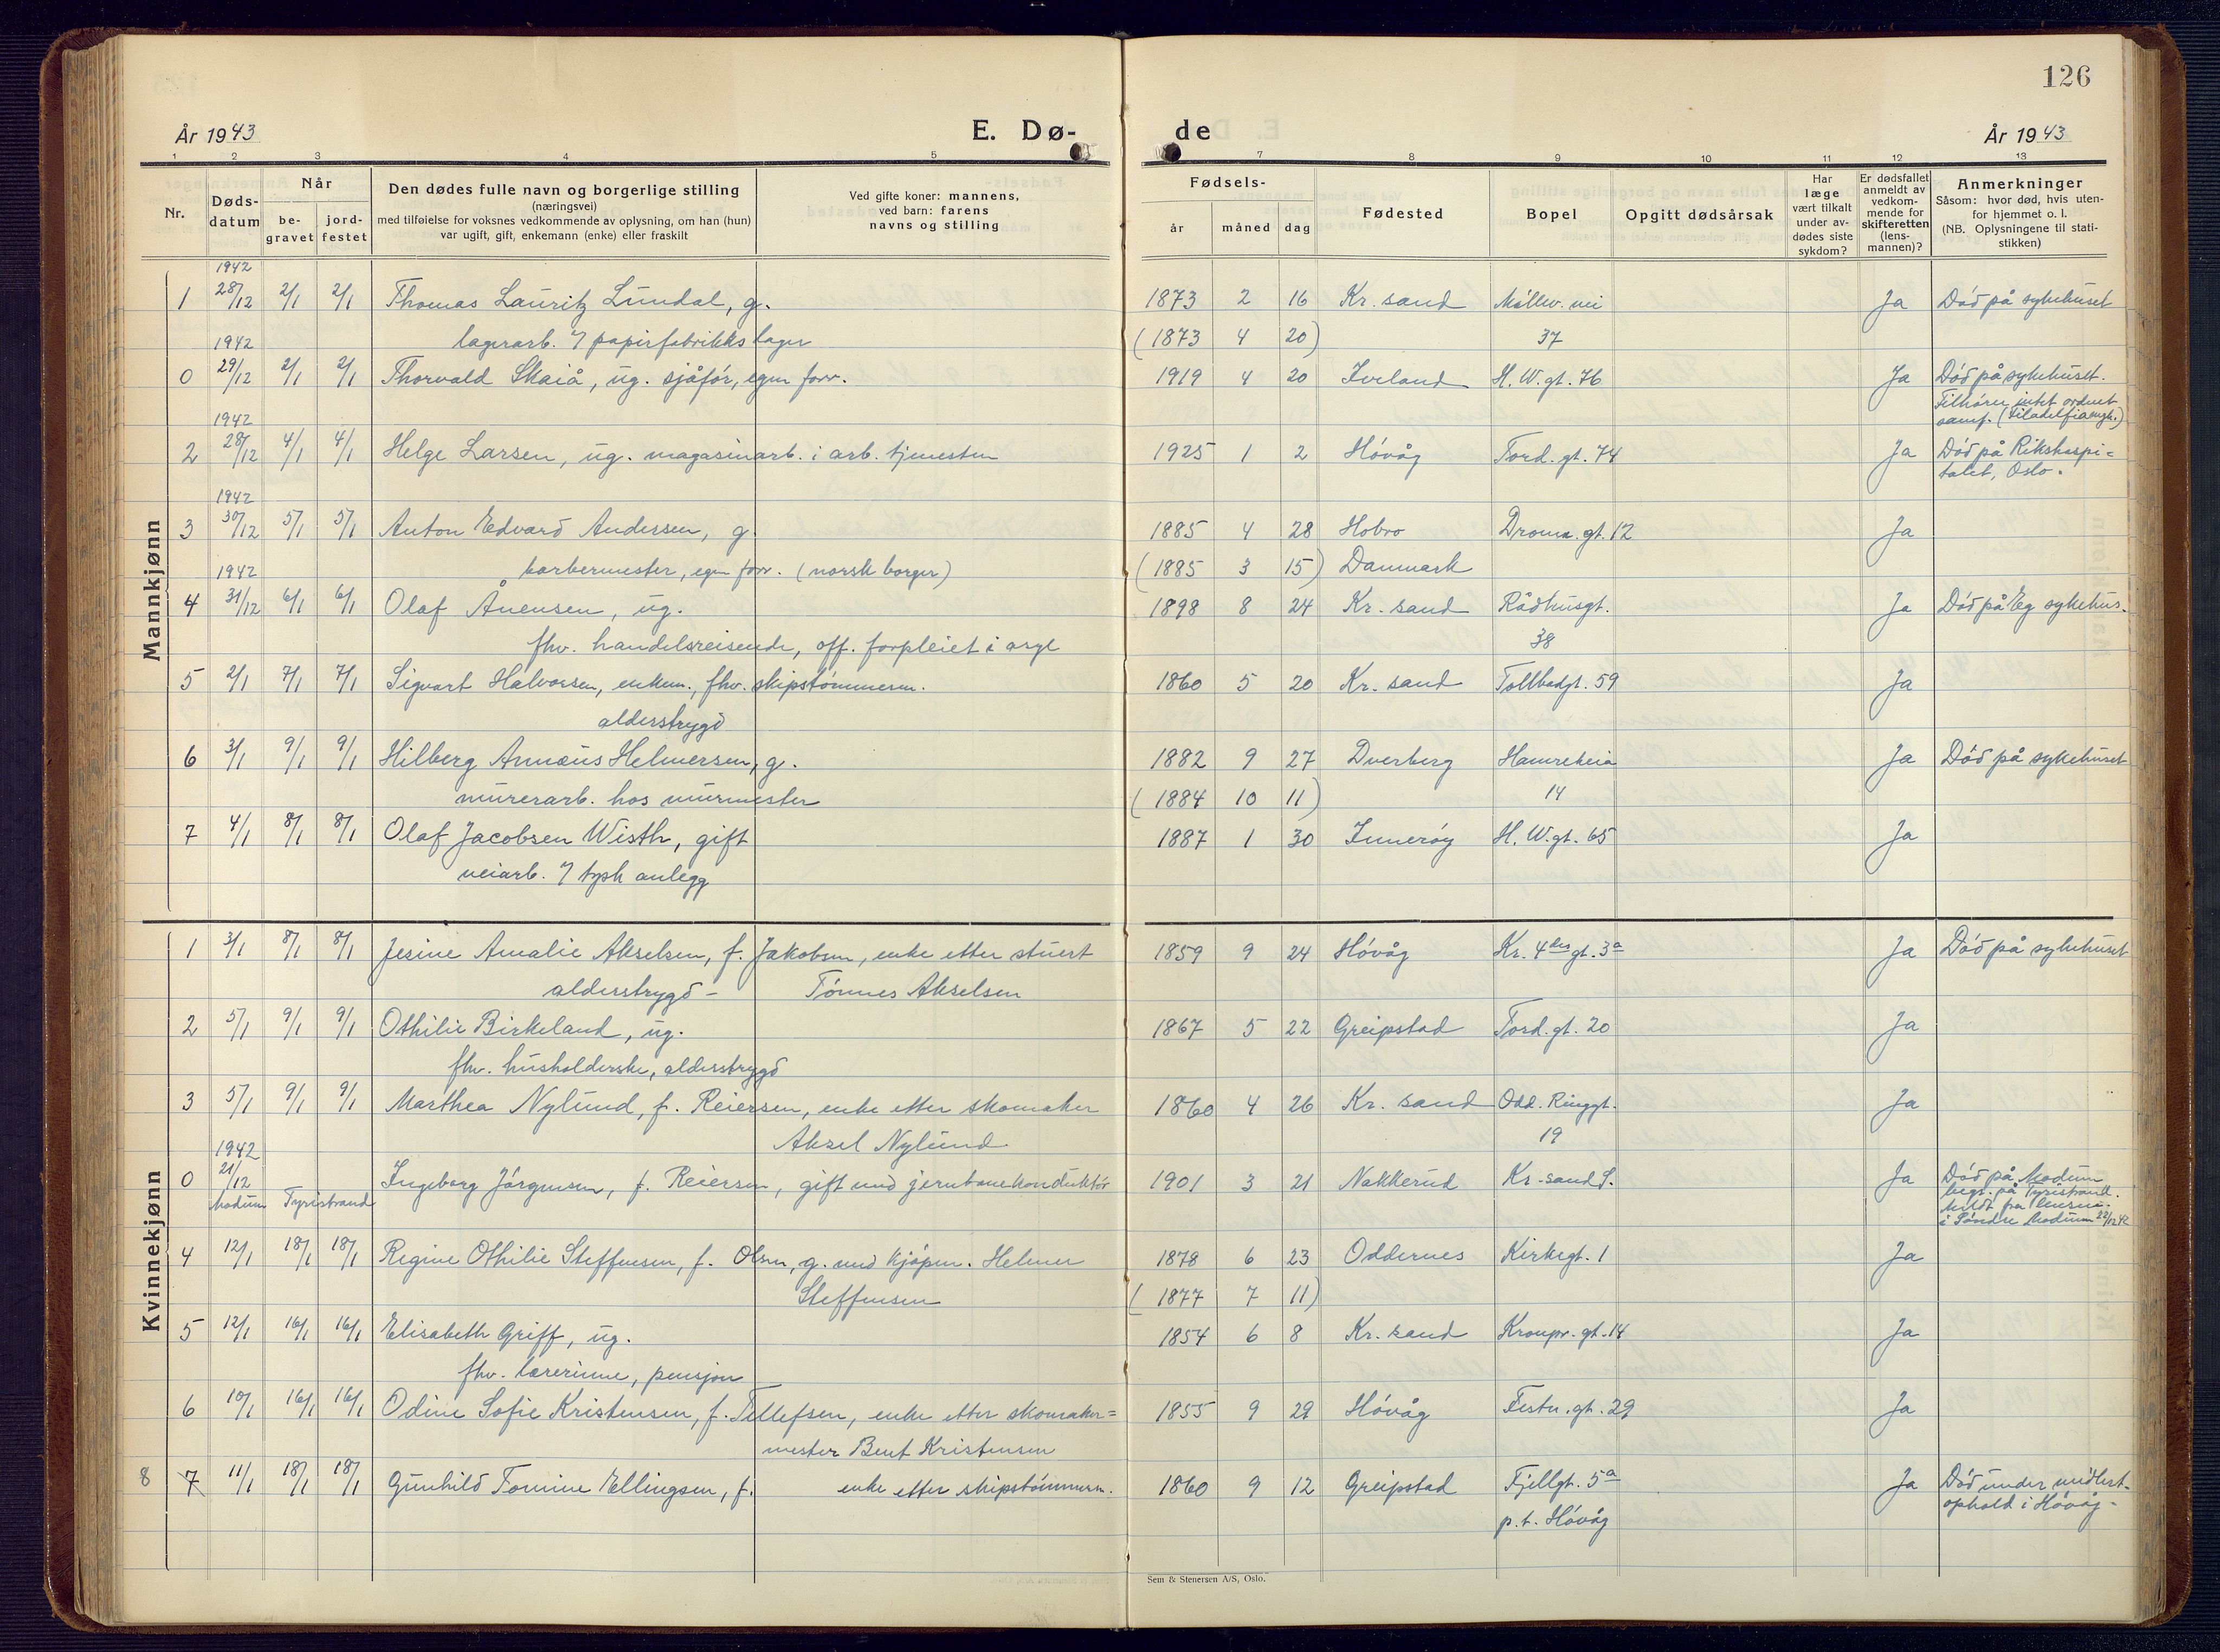 126
År 1943 E. Dø- de År 1943
1 2 3 4 5 7 8 9 10 11 12 13
Nr.
Døds-
datum
Når
be-
gravet
jord-
festet
Den dødes fulle navn og borgerlige stilling
(næringsvei)
med tilføielse for voksnes vedkommende av oplysning, om han (hun)
var ugift, gift, enkemann (enke) eller fraskilt
Ved gifte koner: mannens,
ved barn: farens
navns og stilling
Fødsels-
år måned dag
Fødested
Bopel
Opgitt dødsårsak
Har
læge
vært tilkalt
under av-
dødes siste
sykdom?
Er dødsfallet
anmeldt av
vedkom-
mende for
skifteretten
(lens-
mannen)?
Anmerkninger
Såsom: hvor død, hvis uten-
for hjemmet o. l.
(NB. Oplysningene til stati-
stikken)
Mannkjønn
1942
1 28/12 2/1 2/1 Thomas Lauritz Lundal, g. 1873 2 16 Kr. sand Møllev. vei Ja Død på sykehuset
lagerarb. v/ papirfabrikks lager (1873 4 20) 37
1942
0 29/12 2/1 2/1 Thorvald Skaiå, ug. sjåfør, egen forr. 1919 4 20 Iveland H. W. gt. 76 Ja Død på sykehuset.
Tilhører intet ordnet
samf. (Filadelfiamgh.)
1942
2 28/12 4/1 4/1 Helge Larsen, ug. magasinarb. i arb. tjenesten 1925 1 2 Høvåg Tord. gt. 74 Ja Død på Rikshospi-
talet, Oslo.
1942
3 30/12 5/1 5/1 Anton Edvard Andersen, g. 1885 4 28 Hobro Dronn. gt. 12 Ja
barbermester, egen forr. (norsk borger) (1885 3 15) Danmark
1942
4 31/12 6/1 6/1 Olaf Ånensen, ug. 1898 8 24 Kr. sand Rådhusgt. Ja Død på Eg sykehus.
fhv. handelsreisende, off. forpleiet i asyl 38
5 2/1 7/1 7/1 Sigvart Halvorsen, enkem., fhv. skipstømmerm. 1860 5 20 Kr. sand Tollbodgt. 59 Ja
alderstrygd
6 3/1 9/1 9/1 Hilberg Annæus Helmersen, g. 1882 9 27 Dverberg Hamreheia Ja Død på sykehuset
murerarb. hos murmester (1884 10 11) 14
7 4/1 8/1 8/1 Olaf Jacobsen Wisth, gift 1887 1 30 Innerøy H. W. gt. 65 Ja
veiarb. v/ tysk anlegg
Kvinnekjønn
1 3/1 8/1 8/1 Jesine Amalie Akselsen, f. Jakobsen, enke etter stuert 1859 9 24 Høvåg Kr. 4des gt. 3a Ja Død på sykehuset
alderstrygd - Tønnes Akselsen
2 5/1 9/1 9/1 Othilie Birkeland, ug. 1867 5 22 Greipstad Tord. gt. 20 Ja
fhv. husholderske, alderstrygd
3 5/1 9/1 9/1 Marthea Nylund, f. Reiersen, enke etter skomaker 1860 4 26 Kr. sand Odd. Ringgt. Ja
Aksel Nylund. 19
1942
0 21/12 Ingeborg Jørgensen, f. Reiersen, gift med jernbanekonduktør 1901 3 21 Nakkerud Kr-sand S. Ja Død på Modum
Modum Tyristrand begr. på Tyristrand.
Meldt fra lensm.
i Søndre Modum 22/12 42
4 12/1 18/1 18/1 Regine Othilie Steffensen, f. Olsen, g. med kjøpm. Helmer 1878 6 23 Oddernes Kirkegt. 1 Ja
Steffensen (1877 7 11)
5 12/1 16/1 16/1 Elisabeth Griff, ug. 1854 6 8 Kr. sand Kronpr. gt. 14 Ja
fhv. lærerinne, pensjon
6 10/1 16/1 16/1 Odine Sofie Kristensen, f. Tellefsen, enke etter skomaker= 1855 9 29 Høvåg Festn. gt. 29 Ja
mester Bent Kristensen
8 7 11/1 18/1 18/1 Gunhild Tomine Ellingsen, f. enke etter skipstømmerm. 1860 9 12 Greipstad Fjellgt. 5a Ja Død under midlert.
p.t. Høvåg ophold i Høvåg-
Sem & Stenersen A/S, Oslo.